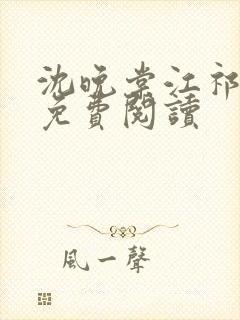 沈晚棠江祁
免費閱讀
風一聲